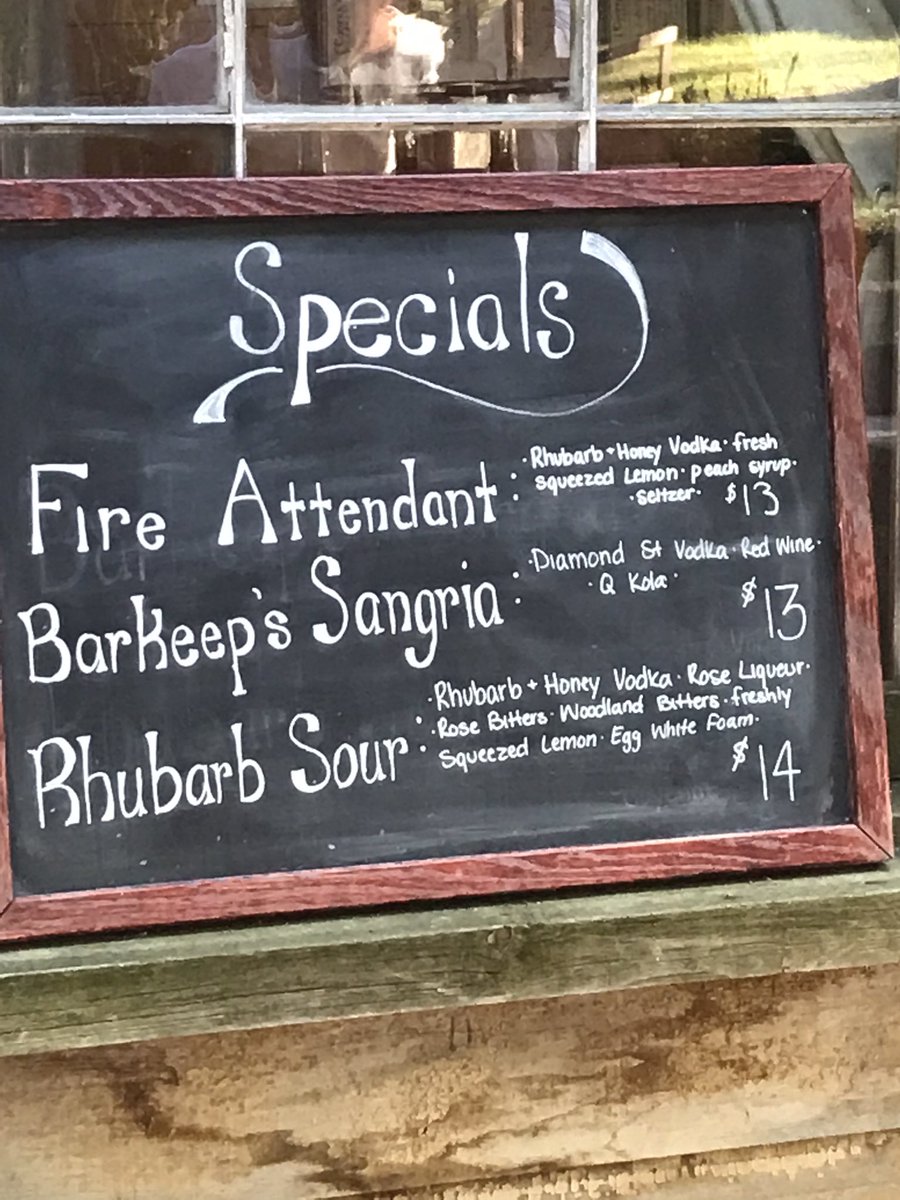 Specials
Fire Attendant :
·Rhubarb + Honey Vodka · fresh
squeezed Lemon · peach syrup·
·seltzer· $13
Barkeep's Sangria :
·Diamond St Vodka · Red Wine·
·Q Kola·
$13
Rhubarb Sour :
·Rhubarb + Honey Vodka · Rose Liqueur·
·Rose Bitters · Woodland Bitters · freshly
Squeezed Lemon · Egg White Foam·
$14